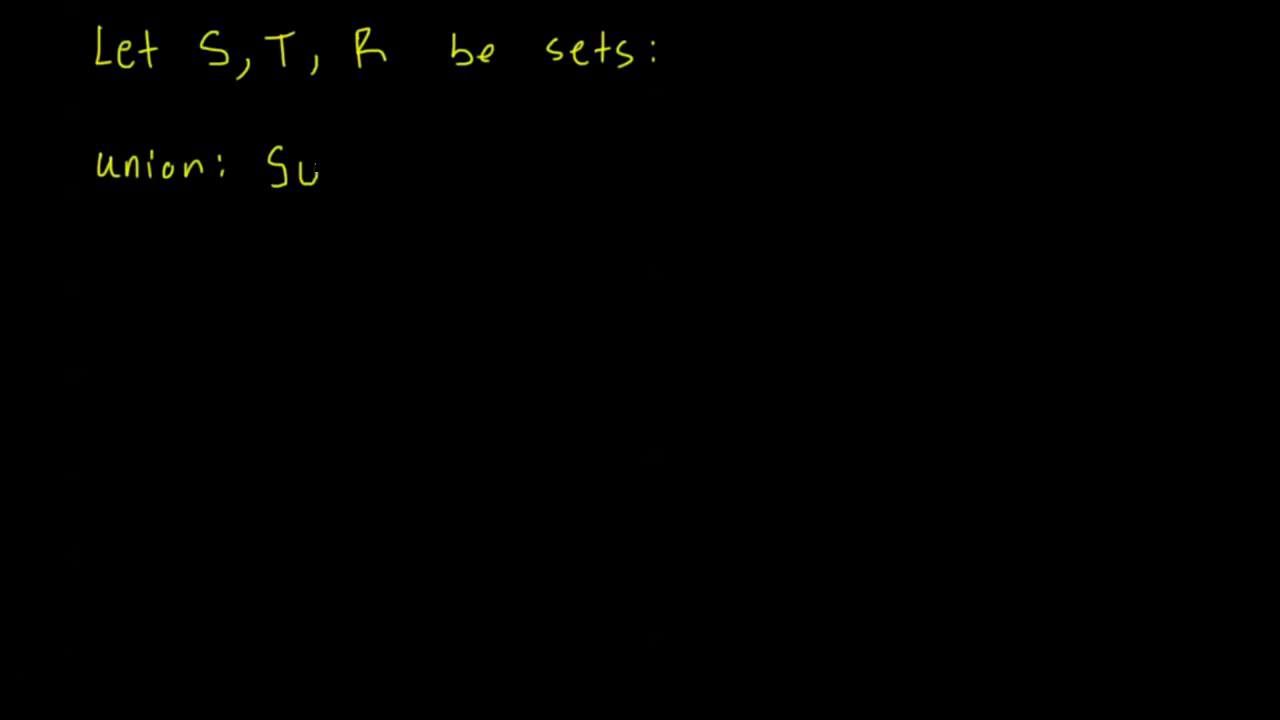 Let S, T, R be sets:
union: S∪